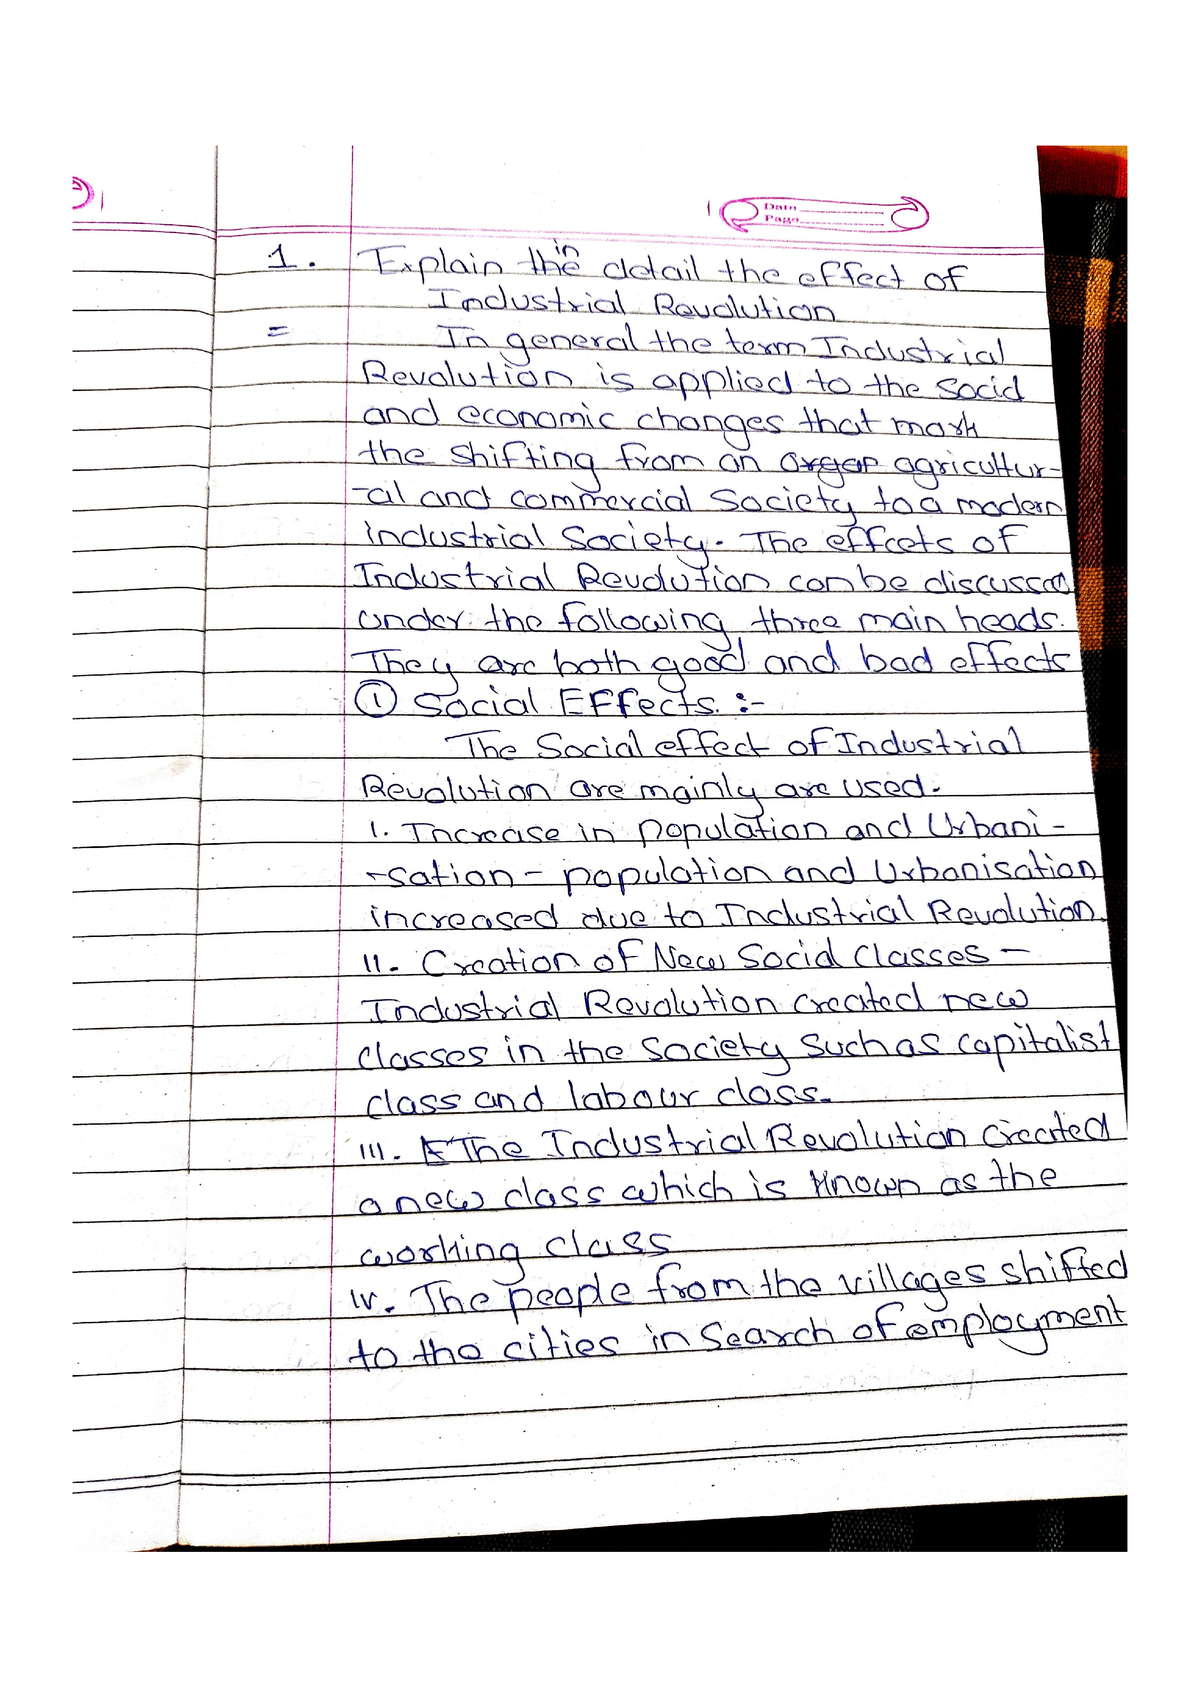 Date
Page
1. Explain the in detail the effect of
Industrial Revolution
= In general the term Industrial
Revolution is applied to the Social
and economic changes that mark
the shifting from an organ agricultur-
-al and commercial Society to a modern
industrial Society. The effects of
Industrial Revolution can be discussed
under the following three main heads.
They are both good and bad effects
① Social Effects :-
The Social effect of Industrial
Revolution are mainly are used.
I. Increase in population and Urbani-
-sation - population and Urbanisation
increased due to Industrial Revolution.
II. Creation of New Social Classes -
Industrial Revolution created new
classes in the Society such as capitalist
class and labour class.
III. The Industrial Revolution created
a new class which is known as the
working class
IV. The people from the villages shifted
to the cities in Search of employment